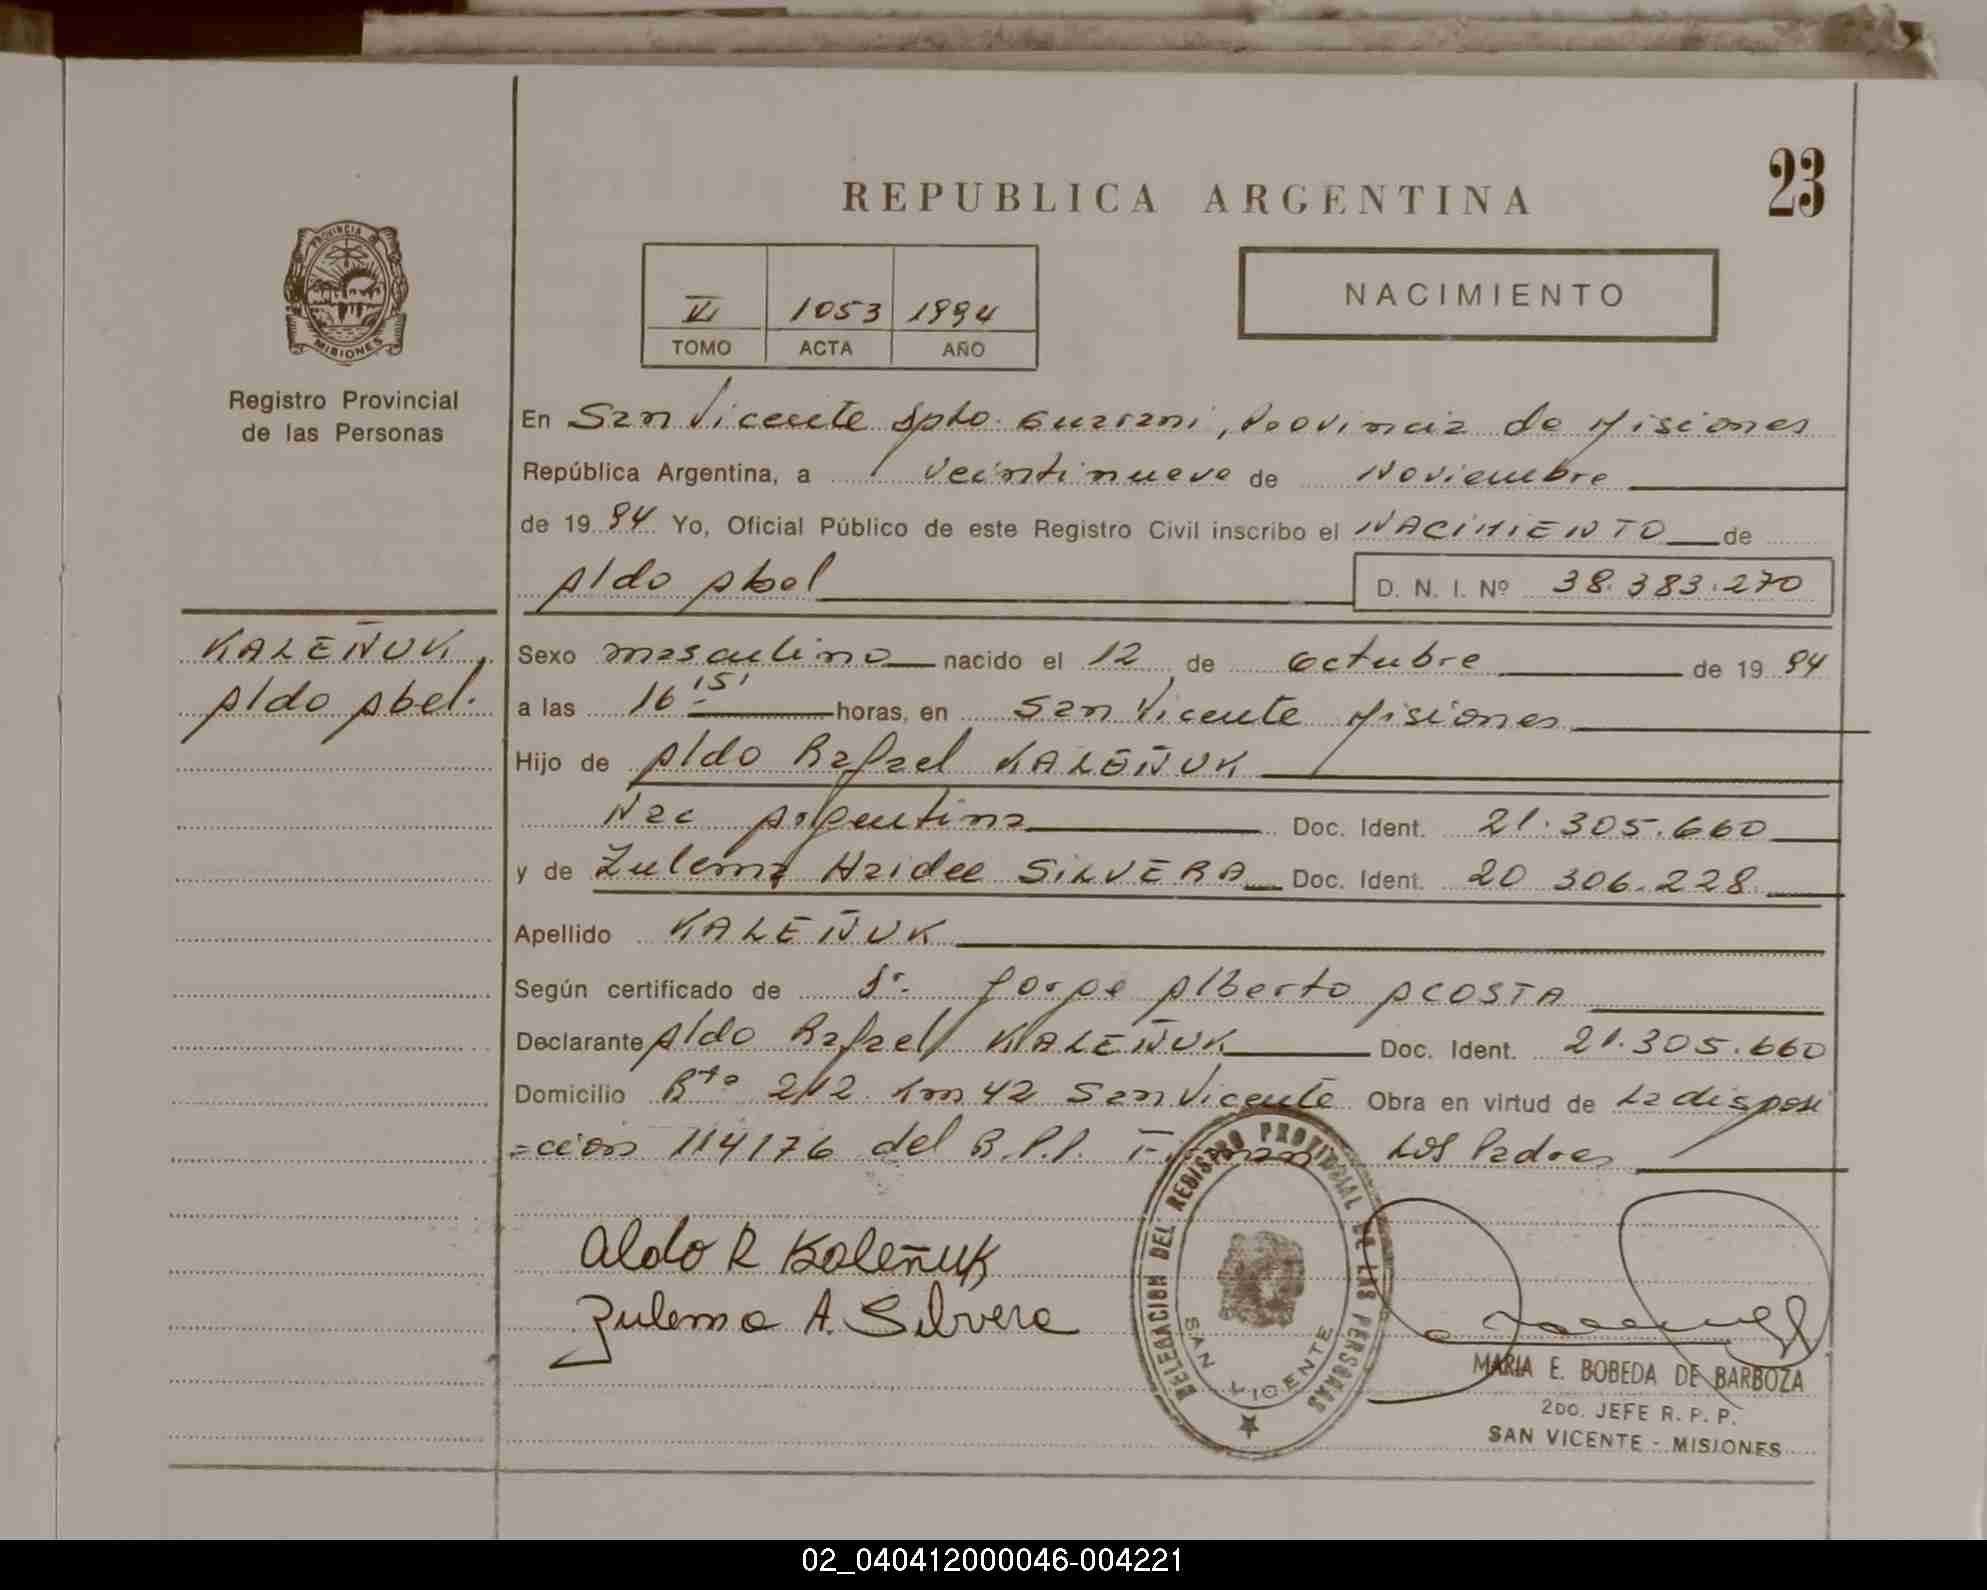 23
REPUBLICA ARGENTINA
PROVINCIA DE
MISIONES
Registro Provincial
de las Personas
VI 1053 1994
TOMO ACTA AÑO
NACIMIENTO
En San Vicente Dpto. Guarani, Provincia de Misiones
República Argentina, a veintinueve de Noviembre
de 19 94 Yo, Oficial Público de este Registro Civil inscribo el NACIMIENTO de
Aldo Abel D. N. I. Nº 38.383.270
KALEÑUK,
Aldo Abel.
Sexo masculino nacido el 12 de octubre de 19 94
a las 16 '15' horas, en San Vicente Misiones
Hijo de Aldo Rafael KALEÑUK
Nac Argentina Doc. Ident. 21.305.660
y de Zulema Haidee SILVERA Doc. Ident. 20 306.228
Apellido KALEÑUK
Según certificado de Dr. Jorge Alberto ACOSTA
Declarante Aldo Rafael KALEÑUK Doc. Ident. 21.305.660
Domicilio Bto 212 km 42 San Vicente Obra en virtud de La disposi
=cion 114176 del R.P.P. Firman Los Padres
Aldo R Kaleñuk
Zulema A. Silvera
DELEGACION DEL REGISTRO PROVINCIAL DE LAS PERSONAS
SAN VICENTE
MARIA E. BOBEDA DE BARBOZA
2DO. JEFE R. P. P.
SAN VICENTE - MISIONES
02_040412000046-004221